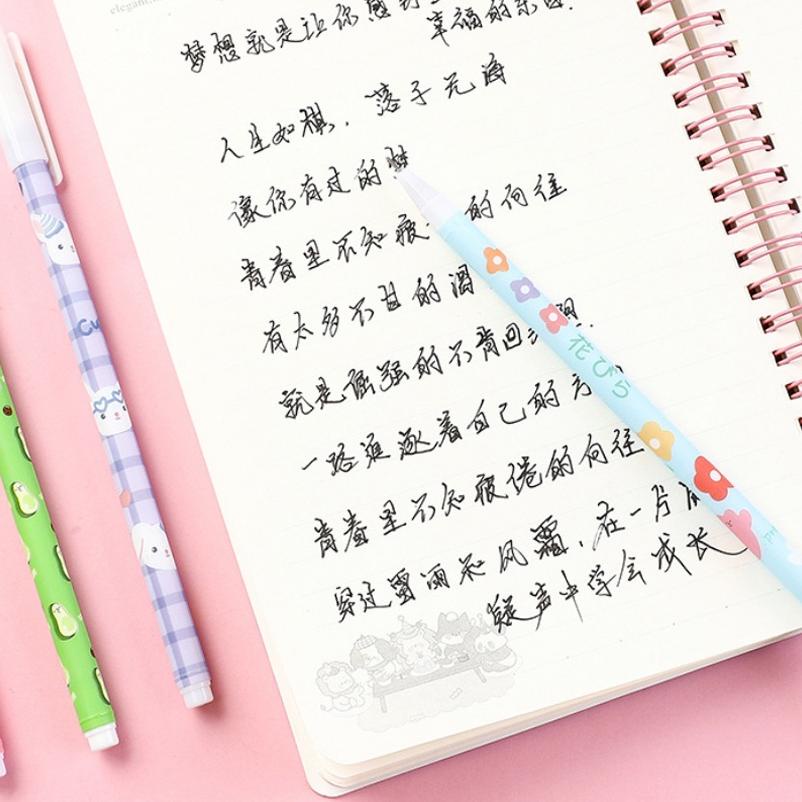 elegant
梦想就是让你感到
幸福的东西.
人生如棋，落子无悔
像你有过的梦
青春里不知疲 的向往
有太多不甘的泪
就是倔强的不肯回
一路追逐着自己的方
青春里不知疲倦的向往
穿过雷雨和风霜，在一片
疑声中学会成长
花びら
Cu